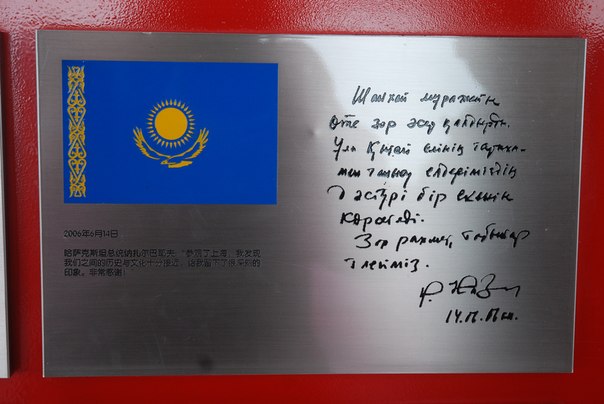 2006年6月14日
哈萨克斯坦总统纳扎尔巴耶夫："参观了上海，我发现
我们之间的历史与文化十分接近，给我留下了很深刻的
印象。非常感谢！
Шанхай мұражайы
Өте зор әсер қалдырды.
Ұлы Қытай елінің тарихы-
мен танысу елдеріміздің
дәстүрі бір екенін
көрсетеді.
Зор рахмет, табыстар
тілейміз.
14.06.06ж.